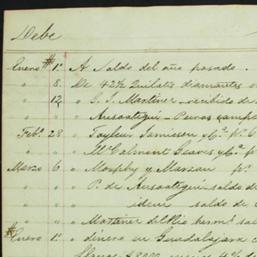 Debe
Enero 1º A Saldo del año pasado.
" 8. " De 42½ Quilates diamantes
" 12, " S. J. Martinez vendido de
Ausoategui - Pesos
Febº 28 " Taylor Jamieson y Cª pº
" " Mc Calmont Geaves y Cª pº
Marzo 6 " Murphy y Marzan pº
" " P. de Ausoategui saldo de
" " idem saldo de
" " Martinez del Rio hermˢ sal
Enero 1º " dinero en Guadalajara
$2000